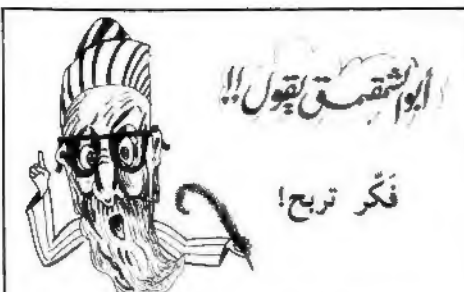 أبو الشمقمق يقول !!
فَكَّر تربح !